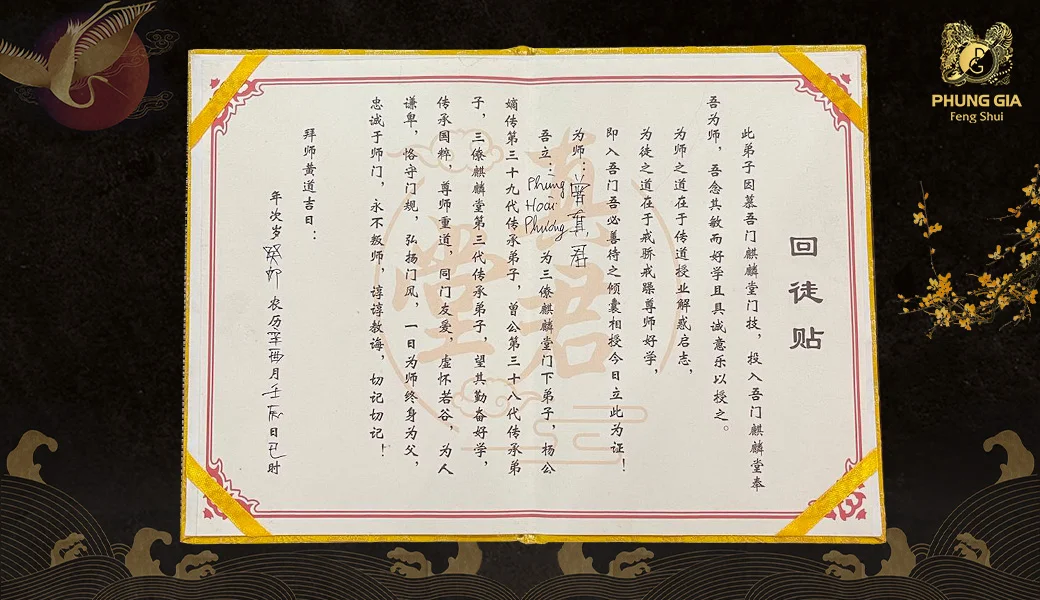 PHUNG GIA
Feng Shui
回徒贴
此弟子因慕吾门麒麟堂门技，投入吾门麒麟堂奉
吾为师，吾念其敏而好学且具诚意乐以授之。
为师之道在于传道授业解惑启志，
为徒之道在于戒骄戒躁尊师好学，
即入吾门吾必善待之倾囊相授今日立此为证！
为师：曾
吾立：Phung Hoài Phương 为三僚麒麟堂门下弟子，杨公
嫡传第三十九代传承弟子，曾公第三十八代传承弟
子，三僚麒麟堂第三代传承弟子，望其勤奋好学，
传承国粹，尊师重道，同门友爱，虚怀若谷，为人
谦卑，恪守门规，弘扬门风，一日为师终身为父，
忠诚于师门，永不叛师，谆谆教诲，切记切记！
拜师黄道吉日：
年次岁癸卯农历辛酉月壬辰日巳时
真君
堂